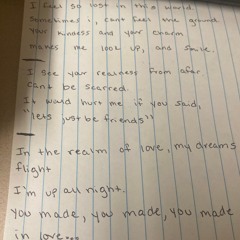 I feel so lost in this world.
Sometimes i, cant feel the ground
Your kindess and your charm
makes me look up, and smile.
I see your realness from afar
Cant be scarred.
It would hurt me if you said,
"lets just be friends"
In the realm of love, my dreams
flight
I'm up all night.
You made, you made, you made
in love...